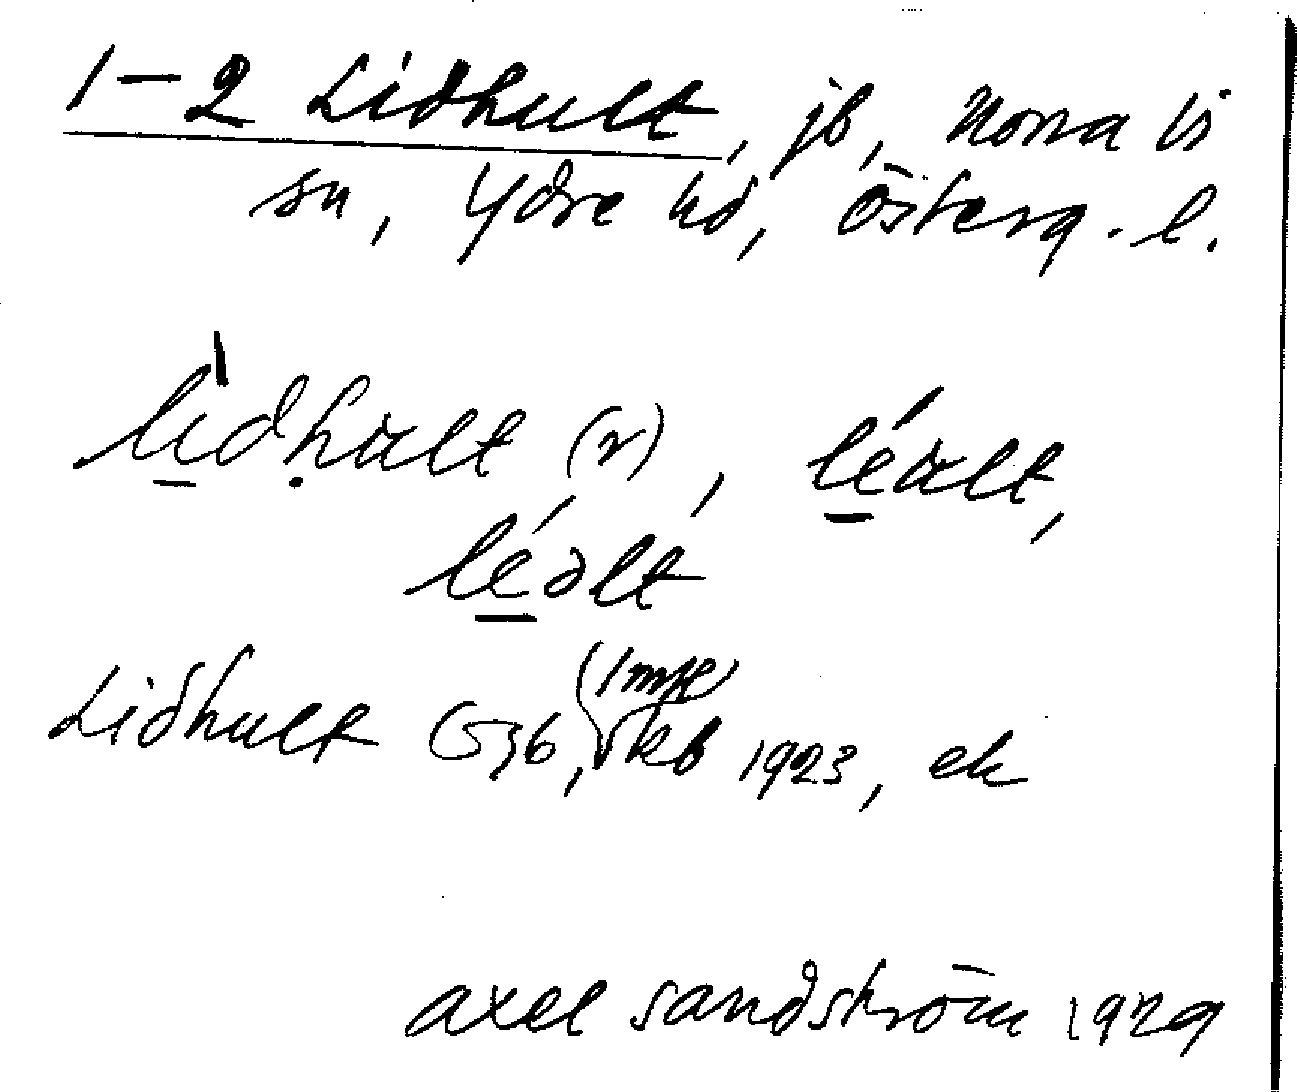 1-2 Lidhult, jb, Norra Vi
sn, Ydre hd, Österg. l.
lìdhult (r), léult,
léəlt
(1 mse)
Lidhult G36, kb 1923, ek
Axel Sandström 1929